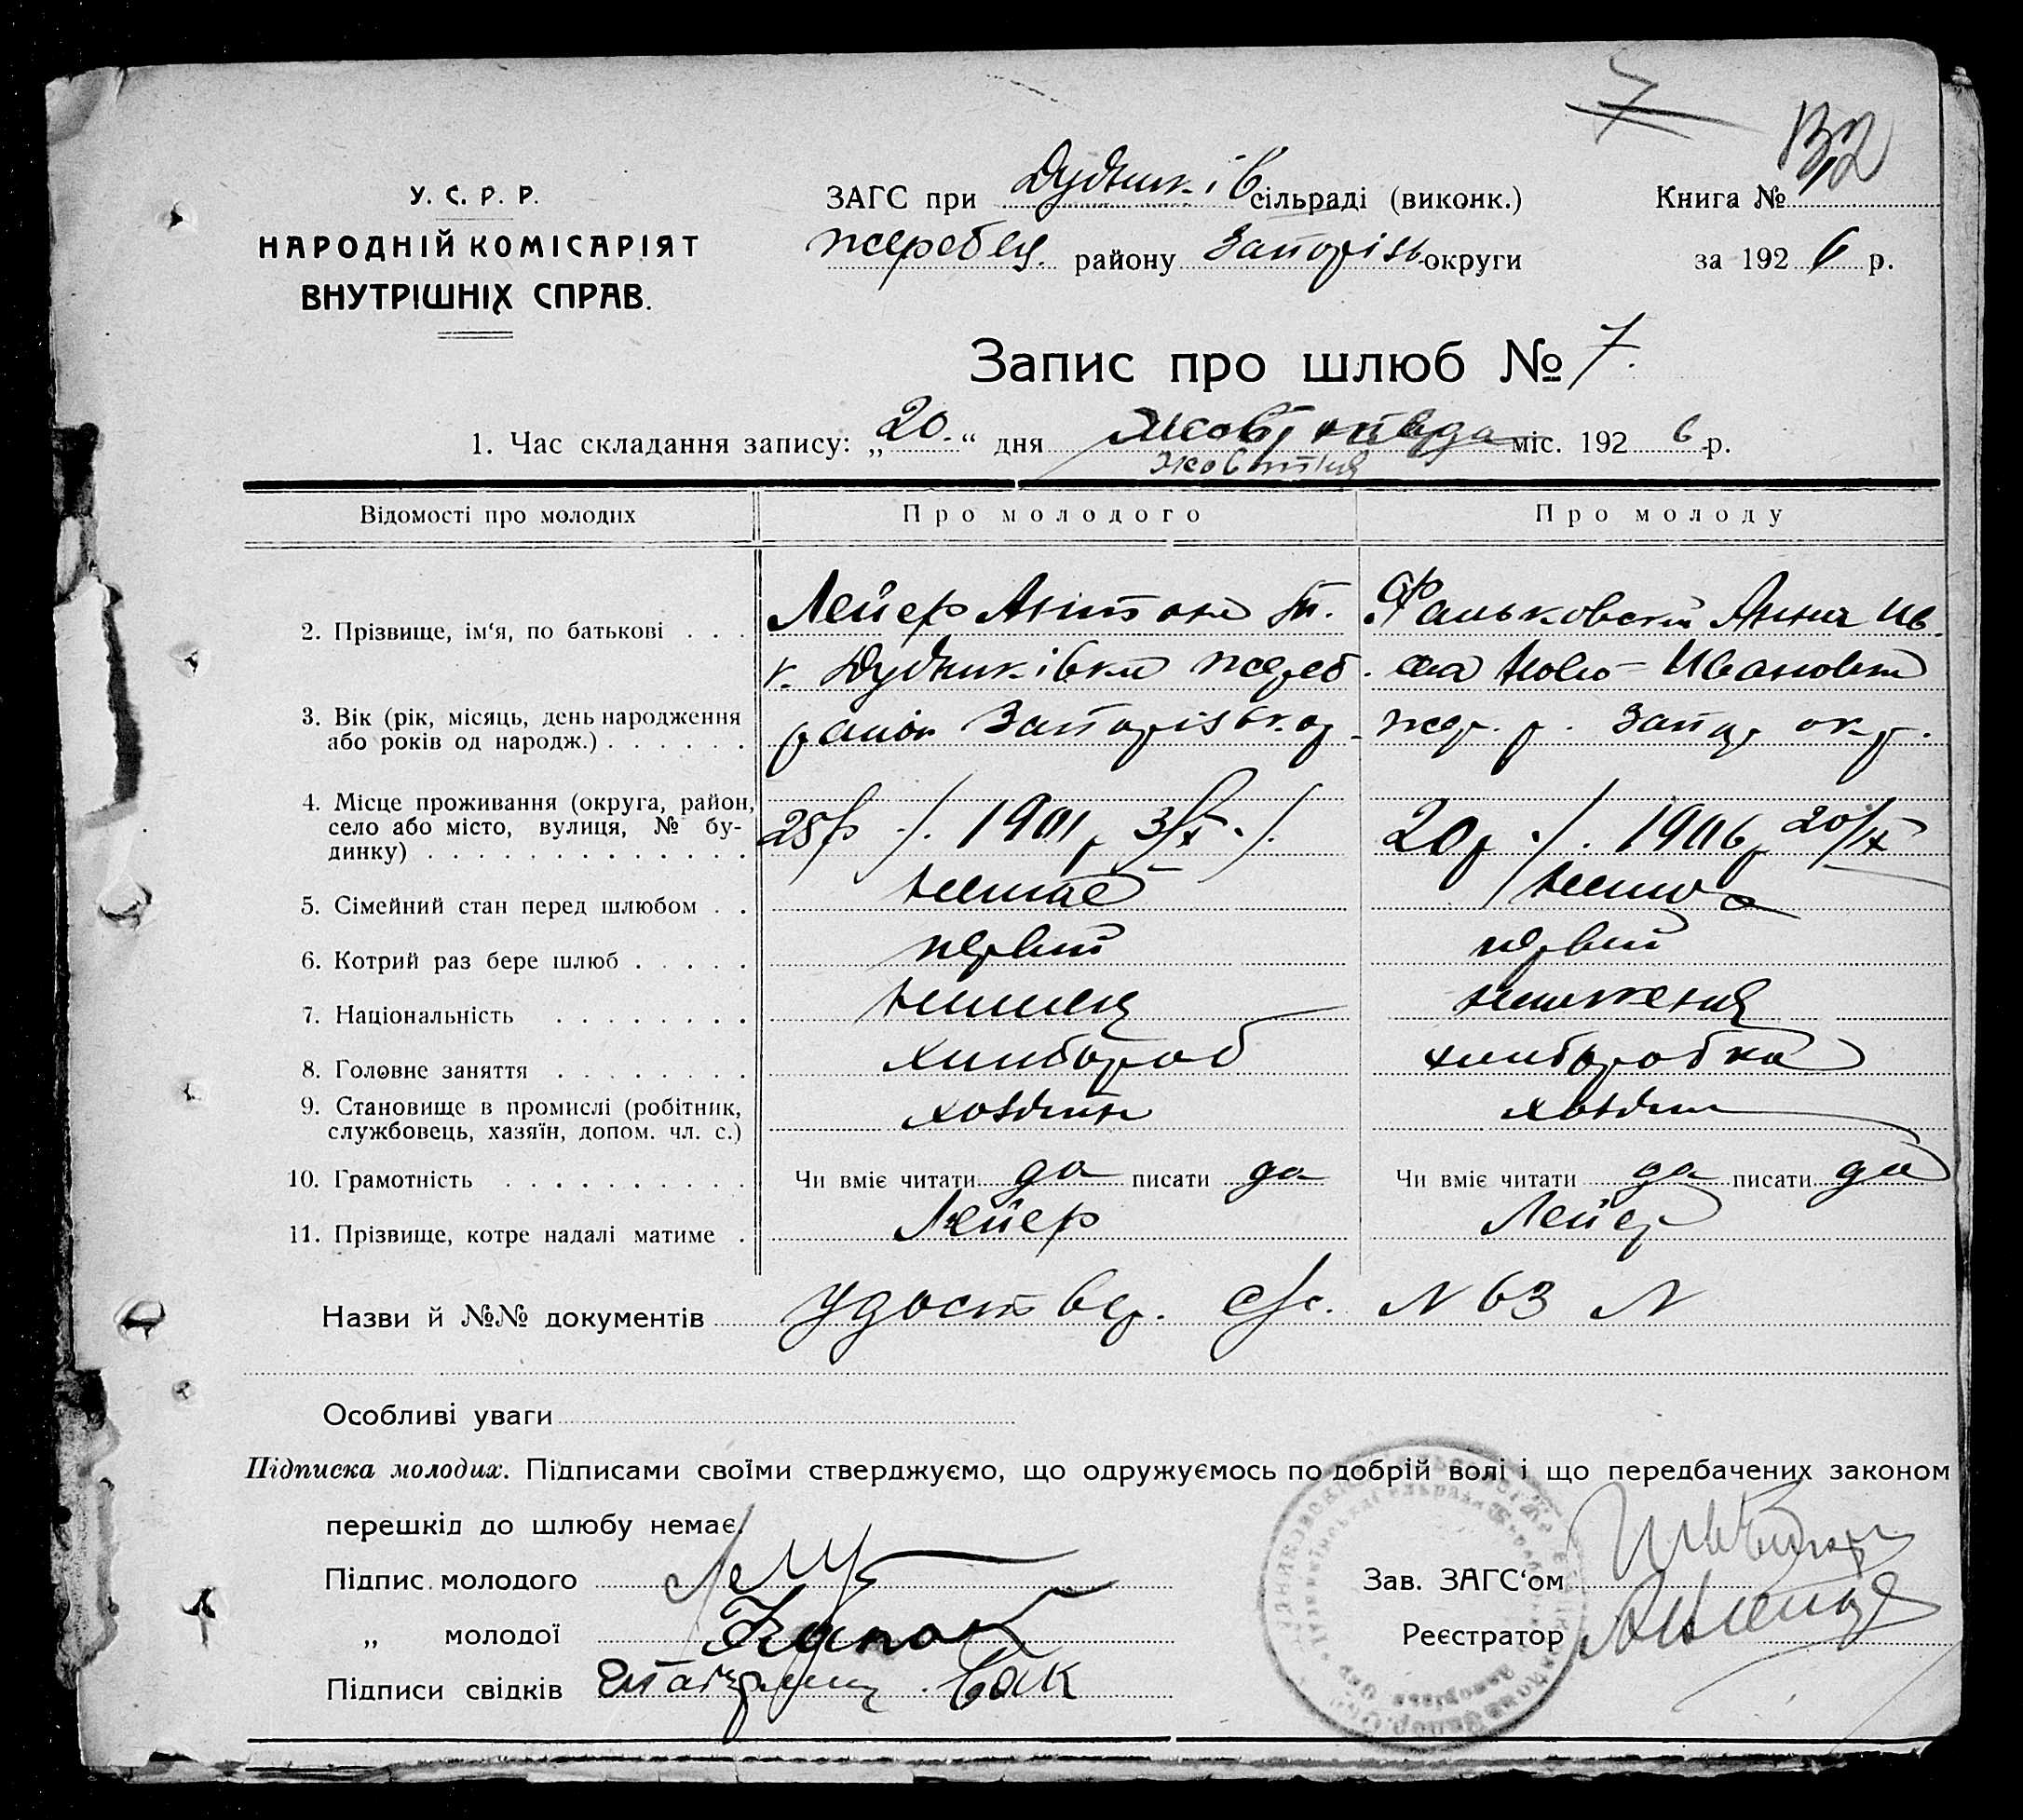 7
У. С. Р. Р.
НАРОДНІЙ КОМІСАРІЯТ
ВНУТРІШНІХ СПРАВ.
ЗАГС при Дудників сільраді (виконк.)
Жеребец. району Запоріз. округи
Книга №
за 1926 р.
Запис про шлюб № 7.
1. Час складання запису: „20.“ дня міс. 1926 р.
жовтня
Відомості про молодих Про молодого Про молоду
2. Прізвище, ім‘я, по батькові . . . Лейер Антон Фальковскій Анна Ив.
к. Дудниківки жереб. Ново-Ивановки
3. Вік (рік, місяць, день народження
або років од народж.) . . . . . . район Запорізьк. жер. р. Запор окр.
4. Місце проживання (округа, район,
село або місто, вулиця, № бу-
динку) . . . . . . . . . . . . 25 р 1901 р 3/X 20 р 1906 р 20/IX
5. Сімейний стан перед шлюбом . . немає
6. Котрий раз бере шлюб . . . . . первий первий
7. Національність . . . . . . . . німець
8. Головне заняття . . . . . . . . хлибороб хлиборобка
9. Становище в промислі (робітник,
службовець, хазяїн, допом. чл. с.) хозяин
10. Грамотність . . . . . . . . . . Чи вміє читати да писати да Чи вміє читати да писати да
11. Прізвище, котре надалі матиме . Лейер Лейер
Назви й №№ документів Удоствер. с/с. N 63 N
Особливі уваги
Підписка молодих. Підписами своїми стверджуємо, що одружуємось по добрій волі і що передбачених законом
перешкід до шлюбу немає.
Підпис молодого
Зав. ЗАГС‘ом
„ молодої
Реєстратор
Підписи свідків